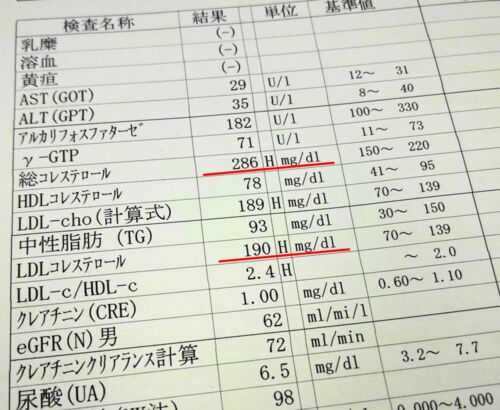 検査名称 結果 単位 基準値
乳糜 (-)
溶血 (-)
黄疸 (-)
AST(GOT) 29 U/l 12～ 31
ALT(GPT) 35 U/l 8～ 40
アルカリフォスファターゼ 182 U/l 100～ 330
γ-GTP 71 U/l 11～ 73
総コレステロール 286 H mg/dl 150～ 220
HDLコレステロール 78 mg/dl 41～ 95
LDL-cho(計算式) 189 H mg/dl 70～ 139
中性脂肪 (TG) 93 mg/dl 30～ 150
LDLコレステロール 190 H mg/dl 70～ 139
LDL-c/HDL-c 2.4 H ～ 2.0
クレアチニン(CRE) 1.00 mg/dl 0.60～ 1.10
eGFR(N)男 62 ml/mi/l
クレアチニンクリアランス計算 72 ml/min
尿酸(UA) 6.5 mg/dl 3.2～ 7.7
98